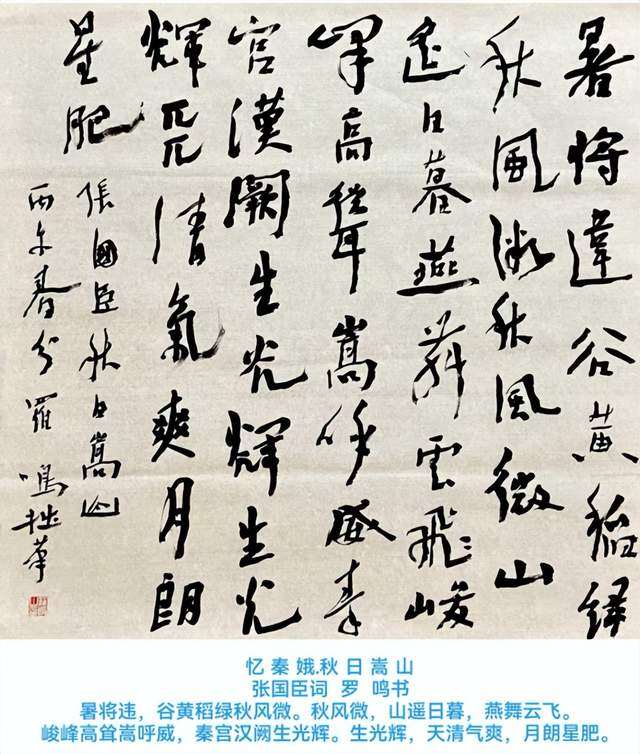 暑將違谷黃稻綠
秋風微秋風微山
遙日暮燕舞雲飛峻
峰高聳嵩呼威秦
宮漢闕生光輝生光
輝天清氣爽月朗
星肥
張國臣秋日嵩山
丙午春分羅鳴拙筆
忆秦娥.秋日嵩山
张国臣词 罗 鸣书
暑将违，谷黄稻绿秋风微。秋风微，山遥日暮，燕舞云飞。
峻峰高耸嵩呼威，秦宫汉阙生光辉。生光辉，天清气爽，月朗星肥。